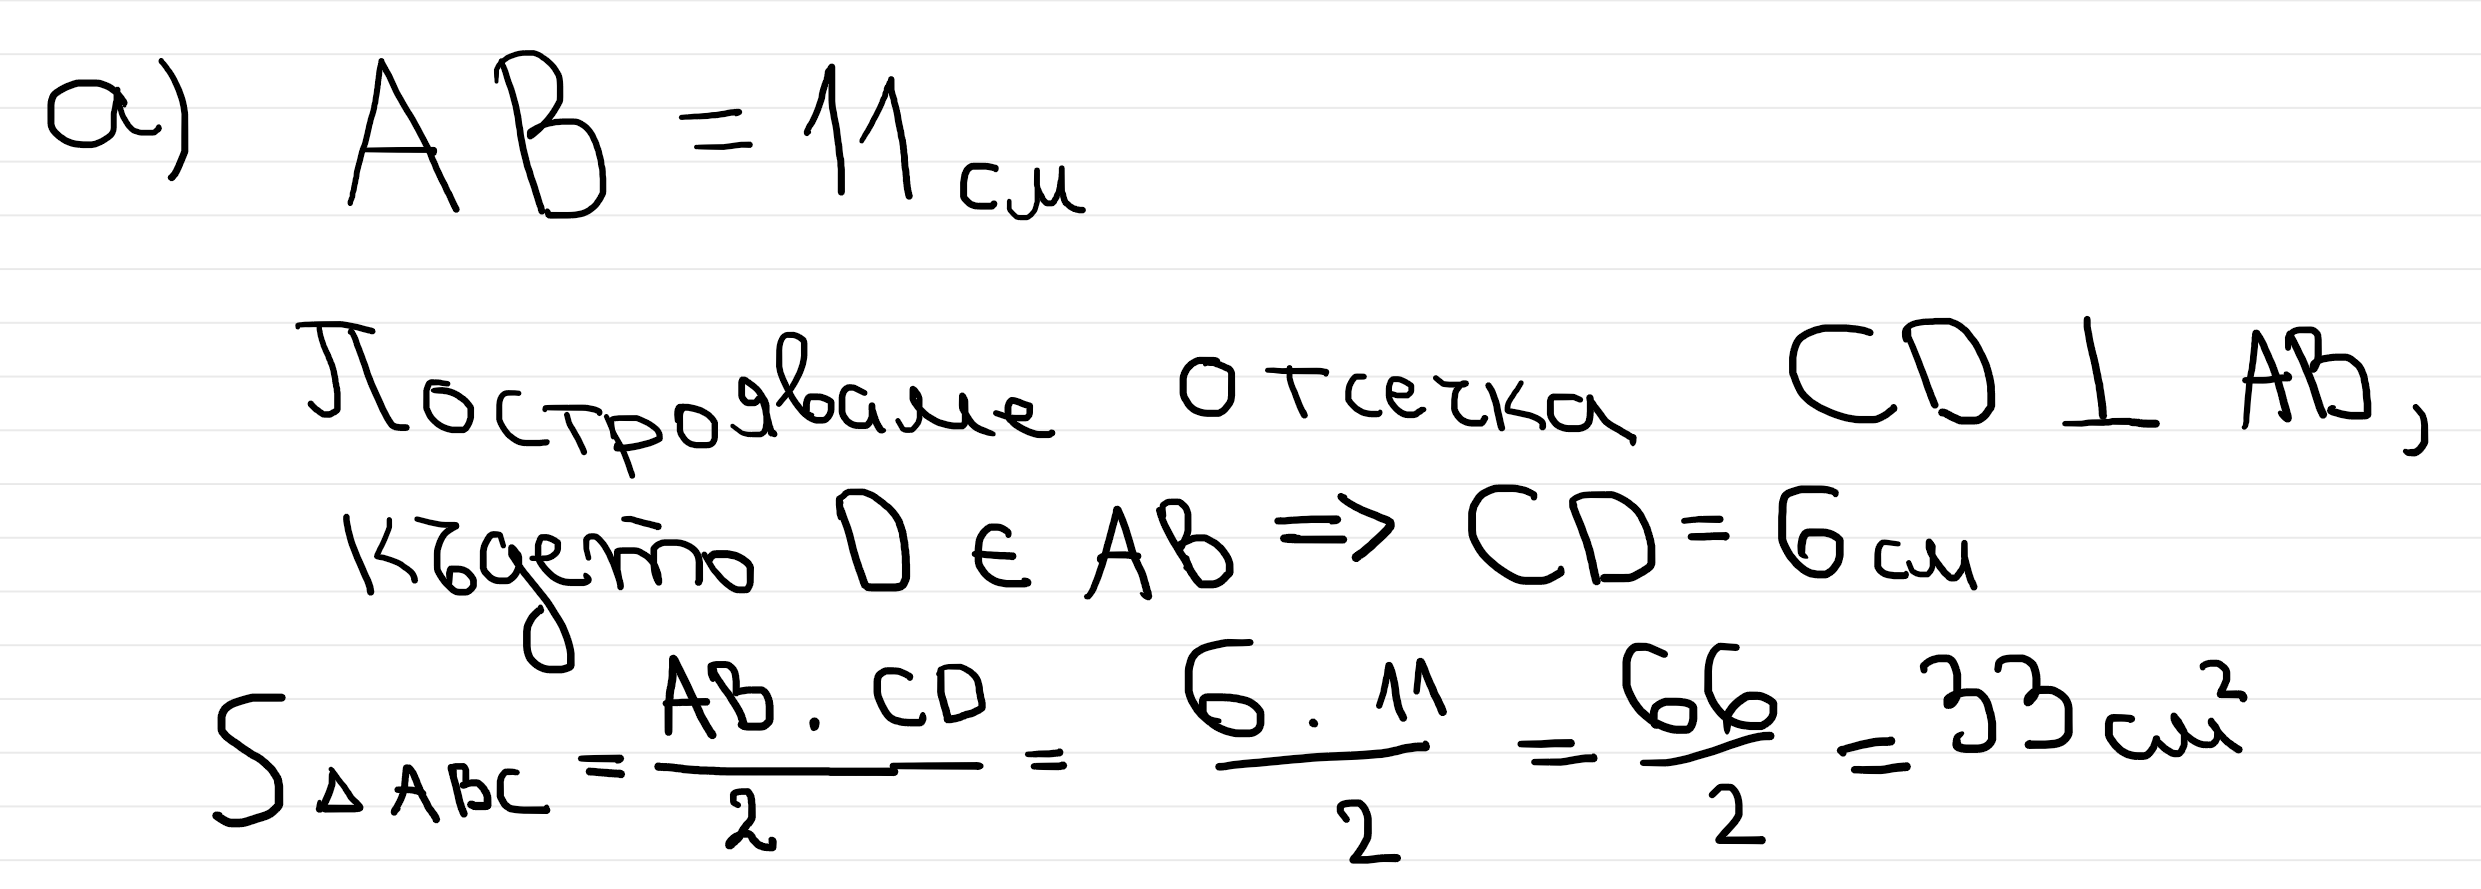 а) AB = 11 см
Построяваме отсечка CD ⊥ AB,
където D ∈ AB => CD = 6 см
S △ABC = AB . CD / 2 = 6 . 11 / 2 = 66 / 2 = 33 см²